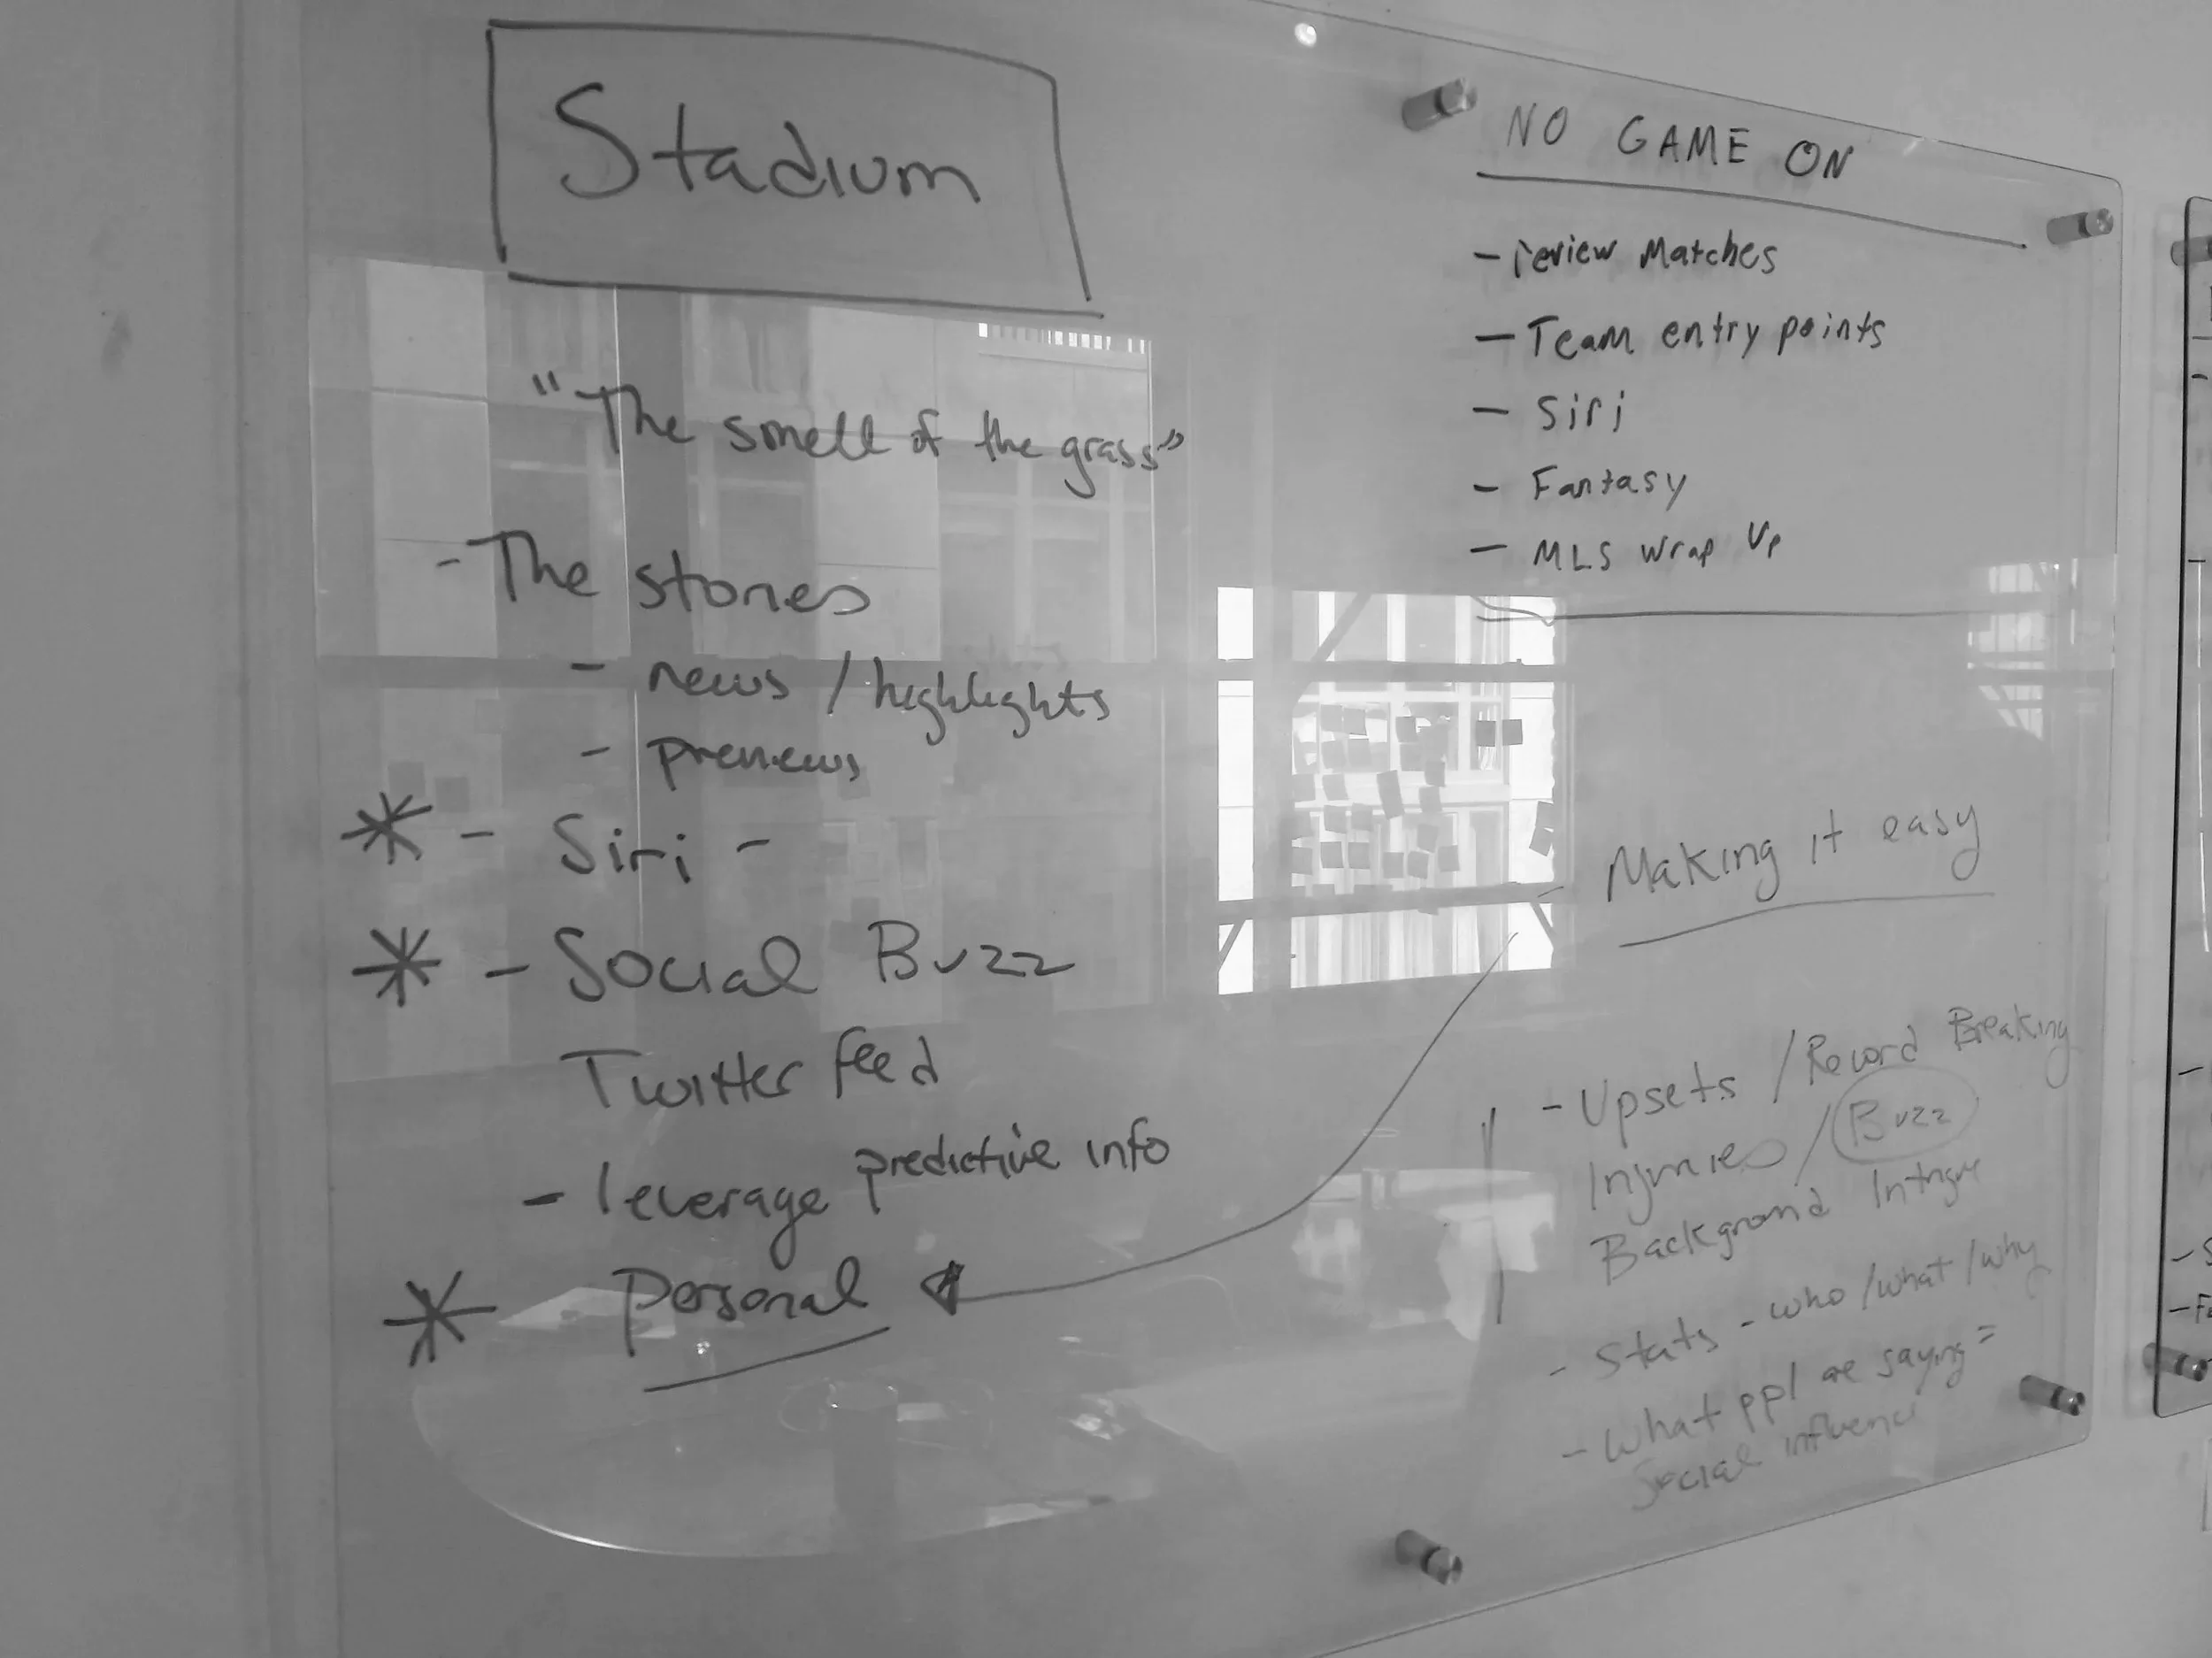 Stadium
"The smell of the grass"
- The stories
- news / highlights
- previews
* - Siri -
* - Social Buzz
Twitter feed
- leverage predictive info
* Personal
NO GAME ON
- review Matches
- Team entry points
- Siri
- Fantasy
- MLS Wrap Up
- Making it easy
- Upsets / Record Breaking
Injuries / Buzz
Background Intrigue
- Stats - who / what / why
- What ppl are saying =
Social influence